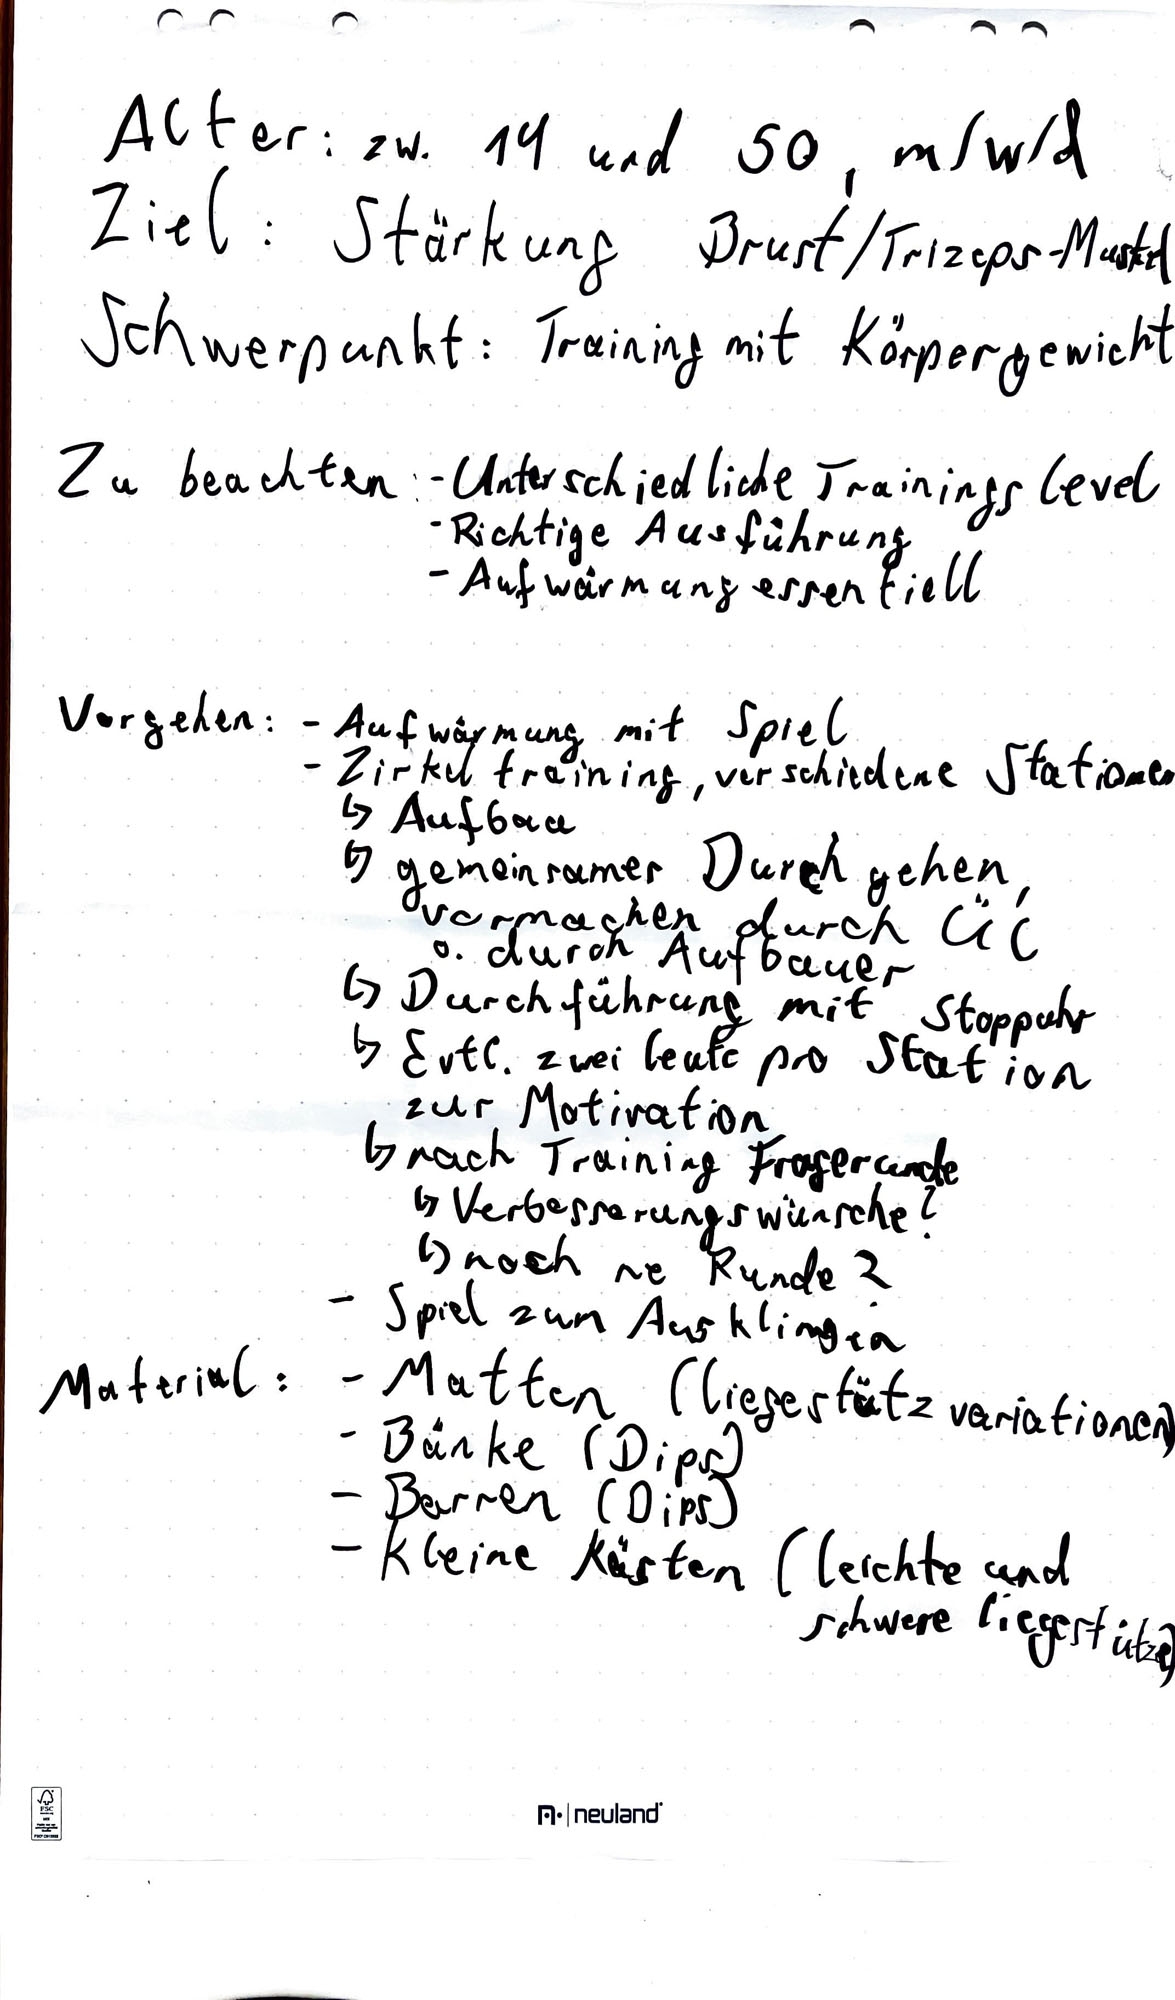 Alter: zw. 14 und 50, m/w/d
Ziel: Stärkung Brust/Trizeps-Muskel
Schwerpunkt: Training mit Körpergewicht
Zu beachten: - Unterschiedliche Trainingslevel
- Richtige Ausführung
- Aufwärmung essentiell
Vorgehen: - Aufwärmung mit Spiel
- Zirkeltraining, verschiedene Stationen
↳ Aufbau
↳ gemeinsamer Durchgehen,
vormachen durch ÜL
o. durch Aufbauer
↳ Durchführung mit Stoppuhr
↳ Evtl. zwei Leute pro Station
zur Motivation
↳ nach Training Fragerunde
↳ Verbesserungswünsche?
↳ noch ne Runde?
- Spiel zum Ausklingen
Material: - Matten (Liegestützvariationen)
- Bänke (Dips)
- Barren (Dips)
- Kleine Kästen (leichte und
schwere Liegestütze)
neuland
FSC